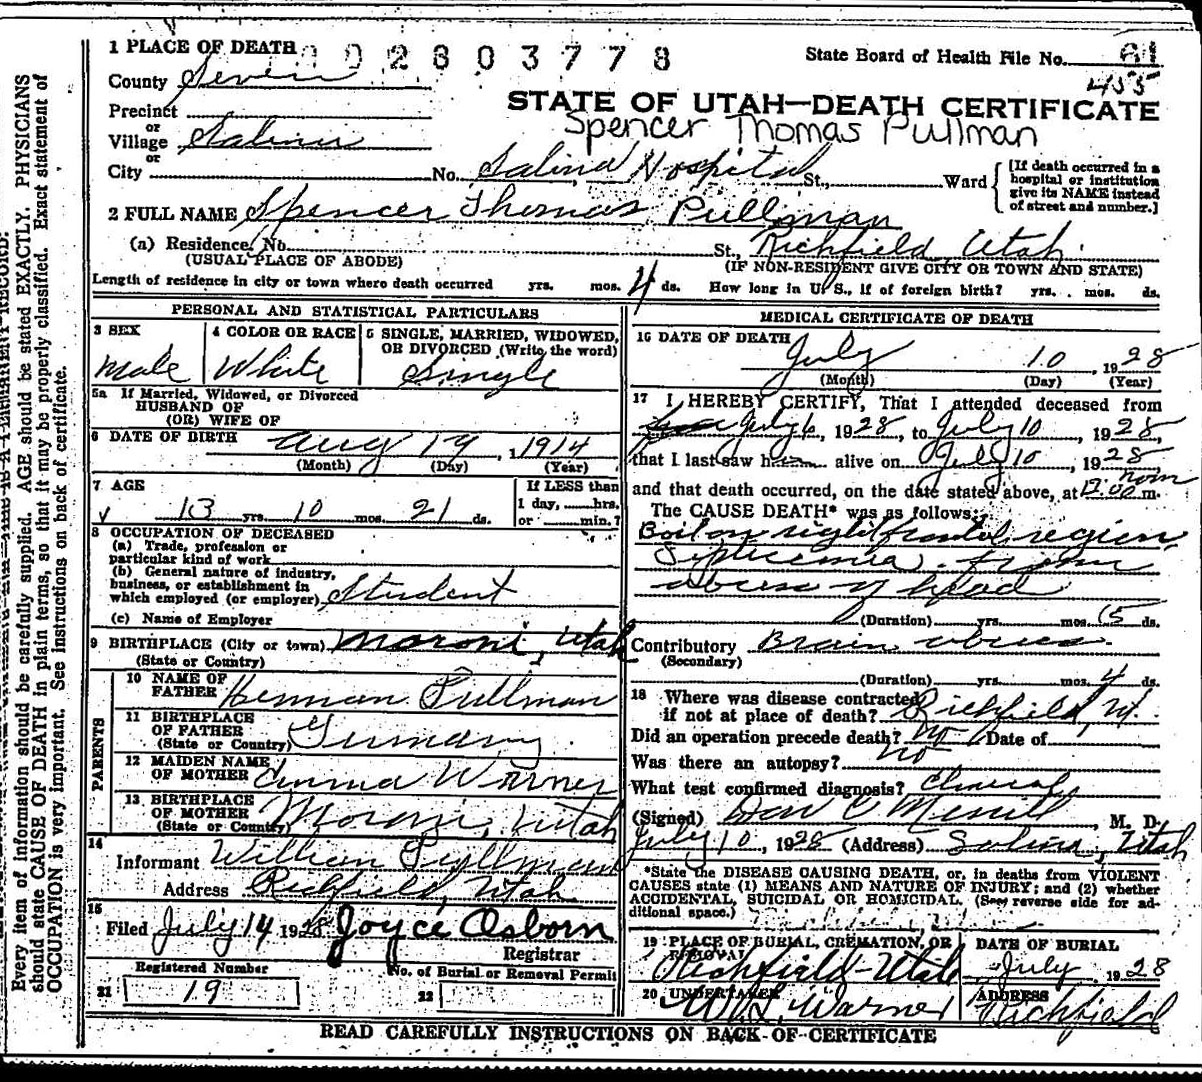 Every item of information should be carefully supplied. AGE should be stated EXACTLY. PHYSICIANS
should state CAUSE OF DEATH in plain terms, so that it may be properly classified. Exact statement of
OCCUPATION is very important. See instructions on back of certificate.
1 PLACE OF DEATH 002803778 State Board of Health File No. 61
County Sevier 455
STATE OF UTAH—DEATH CERTIFICATE
Precinct
Spencer Thomas Pullman
or
Village Salina
or
City No. Salina Hospital St., Ward
[If death occurred in a
hospital or institution
give its NAME instead
of street and number.]
2 FULL NAME Spencer Thomas Pullman
(a) Residence. No. St., Richfield, Utah.
(USUAL PLACE OF ABODE) (IF NON-RESIDENT GIVE CITY OR TOWN AND STATE)
Length of residence in city or town where death occurred yrs. mos. 4 ds. How long in U. S., if of foreign birth? yrs. mos. ds.
PERSONAL AND STATISTICAL PARTICULARS
3 SEX 4 COLOR OR RACE 5 SINGLE, MARRIED, WIDOWED,
OR DIVORCED (Write the word)
Male White Single
5a If Married, Widowed, or Divorced
HUSBAND OF
(OR) WIFE OF
6 DATE OF BIRTH Aug 19, 1914
(Month) (Day) (Year)
7 AGE If LESS than
1 day, hrs.
13 yrs. 10 mos. 21 ds. or min.?
8 OCCUPATION OF DECEASED
(a) Trade, profession or
particular kind of work
(b) General nature of industry,
business, or establishment in
which employed (or employer) Student
(c) Name of Employer
9 BIRTHPLACE (City or town) Moroni, Utah
(State or Country)
PARENTS
10 NAME OF
FATHER Herman Pullman
11 BIRTHPLACE
OF FATHER
(State or Country) Germany
12 MAIDEN NAME
OF MOTHER Emma Warner
13 BIRTHPLACE
OF MOTHER
(State or Country) Moroni, Utah
14
Informant William Pullman
Address Richfield, Utah
15
Filed July 14 1928 Joyce Osborn
Registrar
Registered Number No. of Burial or Removal Permit
21 19 22
MEDICAL CERTIFICATE OF DEATH
16 DATE OF DEATH
July 10, 1928
(Month) (Day) (Year)
17 I HEREBY CERTIFY, That I attended deceased from
July 6, 1928, to July 10, 1928,
that I last saw him alive on July 10, 1928
and that death occurred, on the date stated above, at 12:00 noon m.
The CAUSE DEATH* was as follows:
Boil on right frontal region
Septicemia from
abscess of head
(Duration) yrs. mos. 5 ds.
Contributory Brain abscess
(Secondary)
(Duration) yrs. mos. 4 ds.
18 Where was disease contracted
if not at place of death? Richfield, Ut.
Did an operation precede death? No Date of
Was there an autopsy? No
What test confirmed diagnosis? Clinical
(Signed) Don C Merrill, M. D.
July 10, 1928 (Address) Salina, Utah
*State the DISEASE CAUSING DEATH, or, in deaths from VIOLENT
CAUSES state (1) MEANS AND NATURE OF INJURY; and (2) whether
ACCIDENTAL, SUICIDAL OR HOMICIDAL. (See reverse side for ad-
ditional space.)
19 PLACE OF BURIAL, CREMATION, OR
REMOVAL
Richfield-Utah
DATE OF BURIAL
July 1928
20 UNDERTAKER
W L Warner
ADDRESS
Richfield
READ CAREFULLY INSTRUCTIONS ON BACK OF CERTIFICATE